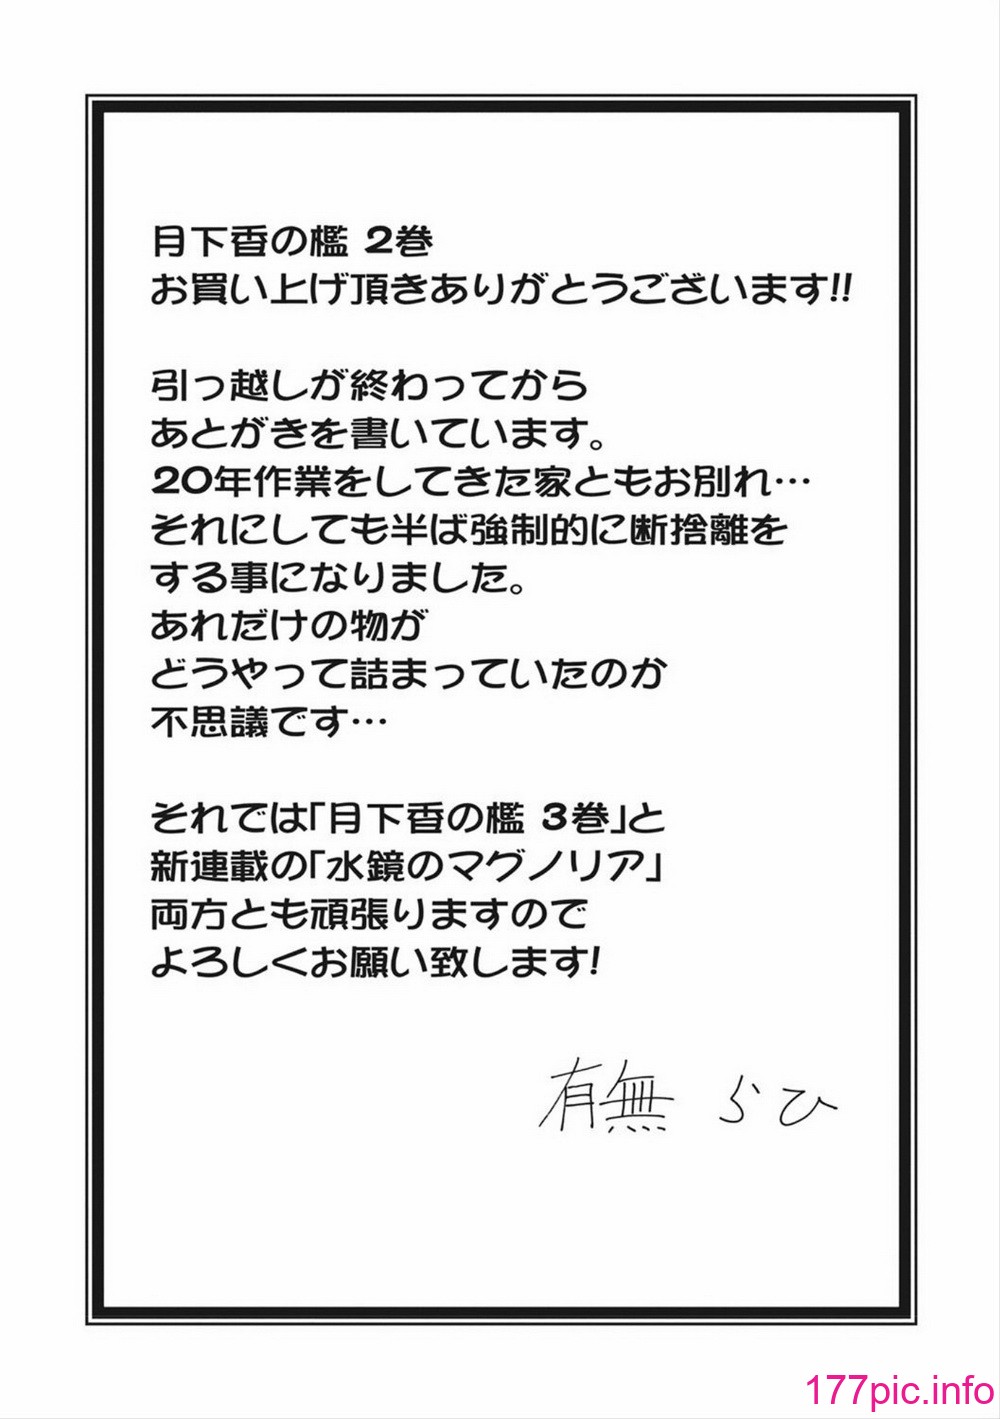 月下香の檻 2巻
お買い上げ頂きありがとうございます!!
引っ越しが終わってから
あとがきを書いています。
20年作業をしてきた家ともお別れ…
それにしても半ば強制的に断捨離を
する事になりました。
あれだけの物が
どうやって詰まっていたのか
不思議です…
それでは「月下香の檻 3巻」と
新連載の「水鏡のマグノリア」
両方とも頑張りますので
よろしくお願い致します!
有無 らひ
177pic.info